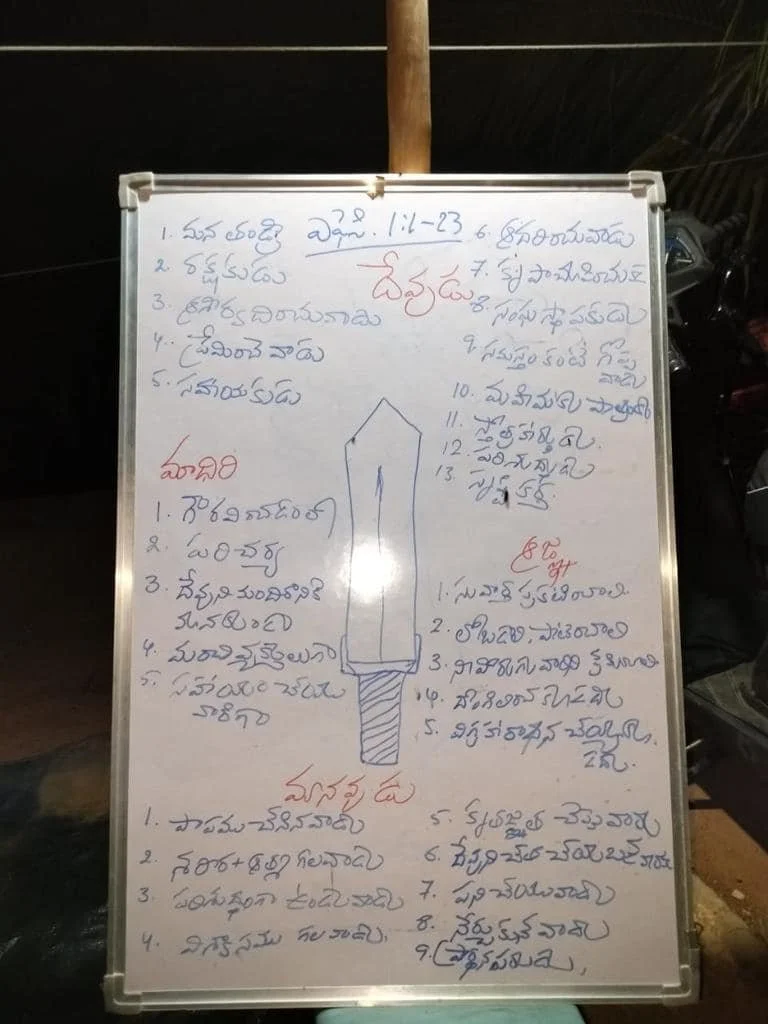 ఎఫెసీ. 1:1-23
దేవుడు
1. మన తండ్రి
2. రక్షకుడు
3. ఆశీర్వదించువాడు
4. ప్రేమించే వాడు
5. సహాయకుడు
6. ఆదరించువాడు
7.
8. సంఘ స్థాపకుడు
9. సమస్తం కంటే గొప్ప
వాడు
10. మహిమకు పాత్రుడు
11. స్తోత్రార్హుడు.
12. పరిశుద్ధుడు
13. సృష్టి కర్త.
మాదిరి
1.
2. పరిచర్య
3. దేవుని మందిరానికి
4.
5. సహాయం చేయు
వారిగా
ఆజ్ఞ
1. సువార్త ప్రకటించాలి.
2. లోబడాలి, పాటించాలి
3.
4. దొంగిలించకూడదు
5. విగ్రహారాధన చేయ్యకూ
డదు.
మానవుడు
1. పాపము చేసినవాడు
2. శరీర + ఆత్మ గలవాడు
3. పరిశుద్ధంగా ఉండువాడు
4. విశ్వాసము గలవాడు.
5. కృతజ్ఞత చెప్పేవాడు
6. దేవుని చేత చేయబడినవాడు
7. పని చేయువాడు
8. నేర్చుకునే వాడు
9. ప్రార్థనపరుడు,